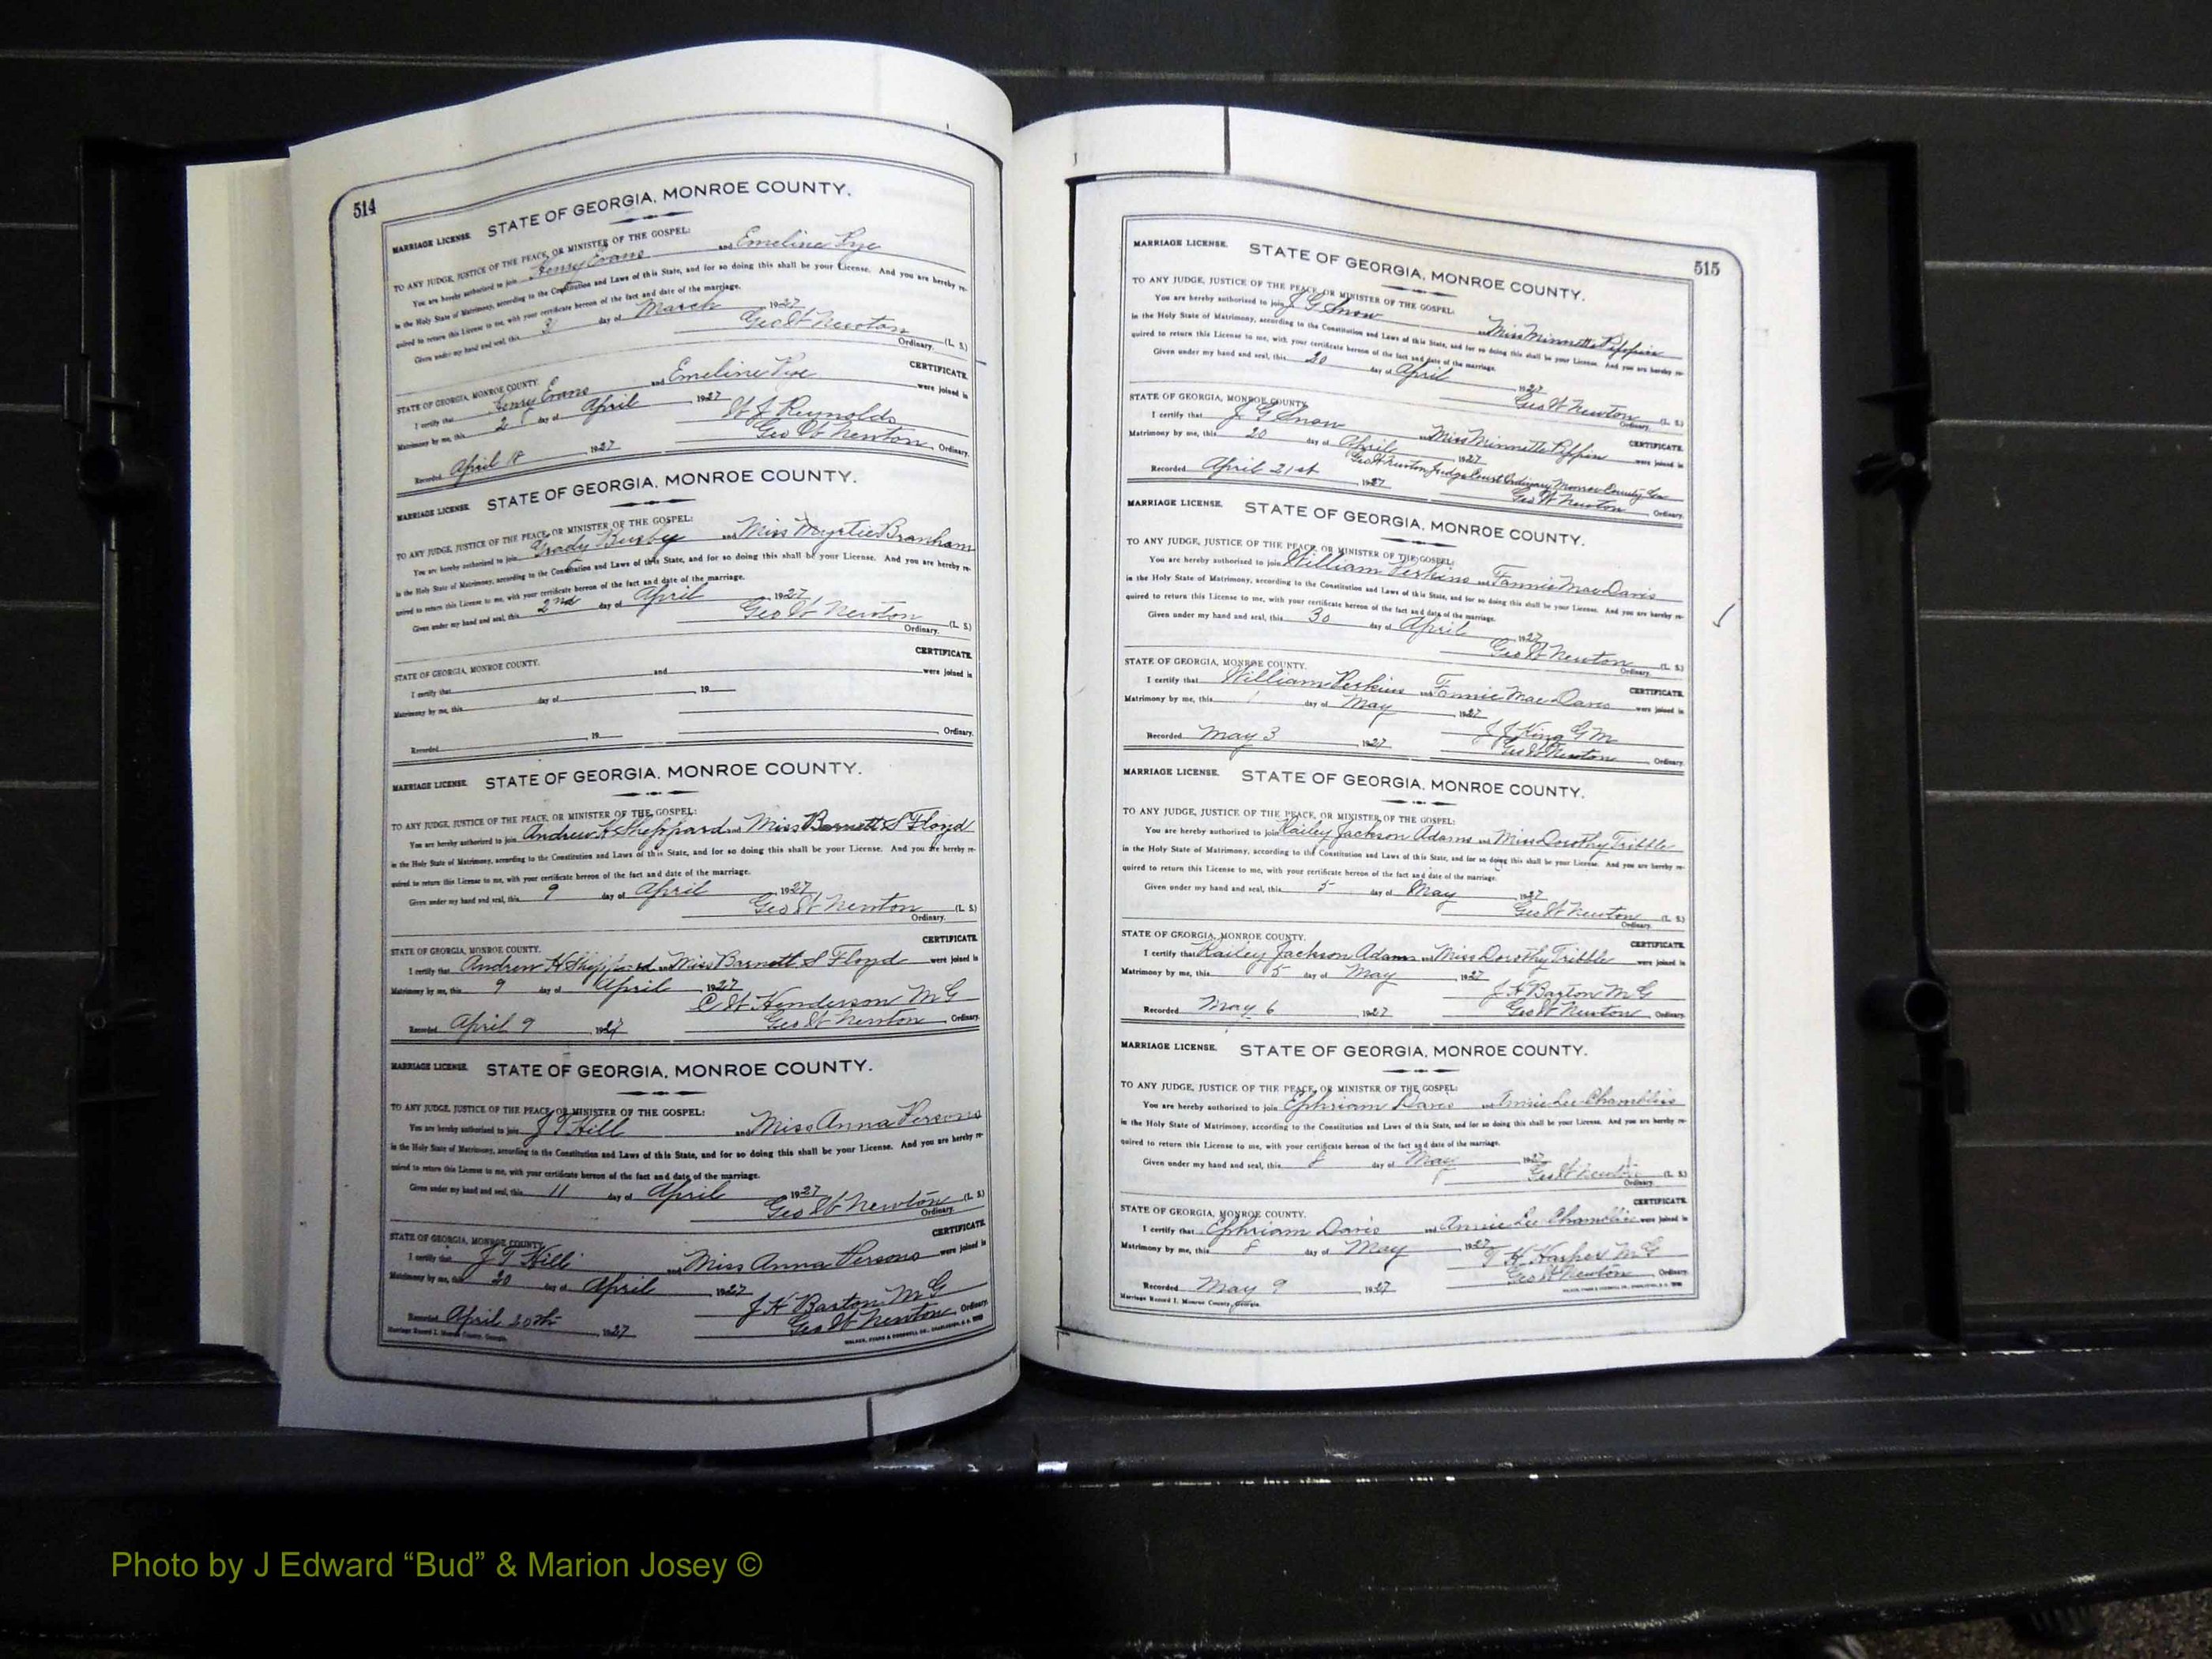 514
MARRIAGE LICENSE. STATE OF GEORGIA, MONROE COUNTY.
TO ANY JUDGE, JUSTICE OF THE PEACE, OR MINISTER OF THE GOSPEL:
You are hereby authorized to join Henry Evans and Emeline Pye
in the Holy State of Matrimony, according to the Constitution and Laws of this State, and for so doing this shall be your License. And you are hereby re-
quired to return this License to me, with your certificate hereon of the fact and date of the marriage.
Given under my hand and seal, this day of March 1927
Geo W Newton (L. S.)
Ordinary.
CERTIFICATE.
STATE OF GEORGIA, MONROE COUNTY.
I certify that Henry Evans and Emeline Pye were joined in
Matrimony by me, this 2 day of April 1927
W J Reynolds
Recorded April 18 1927 Geo W Newton Ordinary.
MARRIAGE LICENSE. STATE OF GEORGIA, MONROE COUNTY.
TO ANY JUDGE, JUSTICE OF THE PEACE, OR MINISTER OF THE GOSPEL:
You are hereby authorized to join Grady Busby and Miss Myrtie Branham
in the Holy State of Matrimony, according to the Constitution and Laws of this State, and for so doing this shall be your License. And you are hereby re-
quired to return this License to me, with your certificate hereon of the fact and date of the marriage.
Given under my hand and seal, this 2nd day of April 1927
Geo W Newton (L. S.)
Ordinary.
CERTIFICATE.
STATE OF GEORGIA, MONROE COUNTY.
I certify that and were joined in
Matrimony by me, this day of 19
Recorded 19 Ordinary.
MARRIAGE LICENSE. STATE OF GEORGIA, MONROE COUNTY.
TO ANY JUDGE, JUSTICE OF THE PEACE, OR MINISTER OF THE GOSPEL:
You are hereby authorized to join Andrew H Sheppard and Miss Barnett S Floyd
in the Holy State of Matrimony, according to the Constitution and Laws of this State, and for so doing this shall be your License. And you are hereby re-
quired to return this License to me, with your certificate hereon of the fact and date of the marriage.
Given under my hand and seal, this 9 day of April 1927
Geo W Newton (L. S.)
Ordinary.
CERTIFICATE.
STATE OF GEORGIA, MONROE COUNTY.
I certify that Andrew H Sheppard and Miss Barnett S Floyd were joined in
Matrimony by me, this 9 day of April 1927
C W Henderson M G
Recorded April 9 1927 Geo W Newton Ordinary.
MARRIAGE LICENSE. STATE OF GEORGIA, MONROE COUNTY.
TO ANY JUDGE, JUSTICE OF THE PEACE, OR MINISTER OF THE GOSPEL:
You are hereby authorized to join J T Hill and Miss Anna Persons
in the Holy State of Matrimony, according to the Constitution and Laws of this State, and for so doing this shall be your License. And you are hereby re-
quired to return this License to me, with your certificate hereon of the fact and date of the marriage.
Given under my hand and seal, this 11 day of April 1927
Geo W Newton (L. S.)
Ordinary.
CERTIFICATE.
STATE OF GEORGIA, MONROE COUNTY.
I certify that J T Hill and Miss Anna Persons were joined in
Matrimony by me, this 20 day of April 1927
J H Barton M G
Recorded April 20th 1927 Geo W Newton Ordinary.
Marriage Record I, Monroe County, Georgia. WALKER, EVANS & COGSWELL CO., CHARLESTON, S. C.
515
MARRIAGE LICENSE. STATE OF GEORGIA, MONROE COUNTY.
TO ANY JUDGE, JUSTICE OF THE PEACE, OR MINISTER OF THE GOSPEL:
You are hereby authorized to join J G Snow and Miss Minnette Pippin
in the Holy State of Matrimony, according to the Constitution and Laws of this State, and for so doing this shall be your License. And you are hereby re-
quired to return this License to me, with your certificate hereon of the fact and date of the marriage.
Given under my hand and seal, this 20 day of April 1927
Geo W Newton (L. S.)
Ordinary.
STATE OF GEORGIA, MONROE COUNTY.
CERTIFICATE.
I certify that J G Snow and Miss Minnette Pippin were joined in
Matrimony by me, this 20 day of April 1927
Geo W Newton Judge Court Ordinary Monroe County Ga
Recorded April 21st 1927 Geo W Newton Ordinary.
MARRIAGE LICENSE. STATE OF GEORGIA, MONROE COUNTY.
TO ANY JUDGE, JUSTICE OF THE PEACE, OR MINISTER OF THE GOSPEL:
You are hereby authorized to join William Perkins and Fannie Mae Davis
in the Holy State of Matrimony, according to the Constitution and Laws of this State, and for so doing this shall be your License. And you are hereby re-
quired to return this License to me, with your certificate hereon of the fact and date of the marriage.
Given under my hand and seal, this 30 day of April 1927
Geo W Newton (L. S.)
Ordinary.
STATE OF GEORGIA, MONROE COUNTY.
CERTIFICATE.
I certify that William Perkins and Fannie Mae Davis were joined in
Matrimony by me, this 1 day of May 1927
J J King G M
Recorded May 3 1927 Geo W Newton Ordinary.
MARRIAGE LICENSE. STATE OF GEORGIA, MONROE COUNTY.
TO ANY JUDGE, JUSTICE OF THE PEACE, OR MINISTER OF THE GOSPEL:
You are hereby authorized to join Railey Jackson Adams and Miss Dorothy Tribble
in the Holy State of Matrimony, according to the Constitution and Laws of this State, and for so doing this shall be your License. And you are hereby re-
quired to return this License to me, with your certificate hereon of the fact and date of the marriage.
Given under my hand and seal, this 5 day of May 1927
Geo W Newton (L. S.)
Ordinary.
STATE OF GEORGIA, MONROE COUNTY.
CERTIFICATE.
I certify that Railey Jackson Adams and Miss Dorothy Tribble were joined in
Matrimony by me, this 5 day of May 1927
J H Barton M G
Recorded May 6 1927 Geo W Newton Ordinary.
MARRIAGE LICENSE. STATE OF GEORGIA, MONROE COUNTY.
TO ANY JUDGE, JUSTICE OF THE PEACE, OR MINISTER OF THE GOSPEL:
You are hereby authorized to join Ephriam Davis and Annie Lee Chambliss
in the Holy State of Matrimony, according to the Constitution and Laws of this State, and for so doing this shall be your License. And you are hereby re-
quired to return this License to me, with your certificate hereon of the fact and date of the marriage.
Given under my hand and seal, this 8 day of May 1927
Geo W Newton (L. S.)
Ordinary.
STATE OF GEORGIA, MONROE COUNTY.
CERTIFICATE.
I certify that Ephriam Davis and Annie Lee Chambliss were joined in
Matrimony by me, this 8 day of May 1927
T H Harper M G
Recorded May 9 1927 Geo W Newton Ordinary.
Marriage Record I, Monroe County, Georgia. WALKER, EVANS & COGSWELL CO., CHARLESTON, S. C.
Photo by J Edward “Bud” & Marion Josey ©